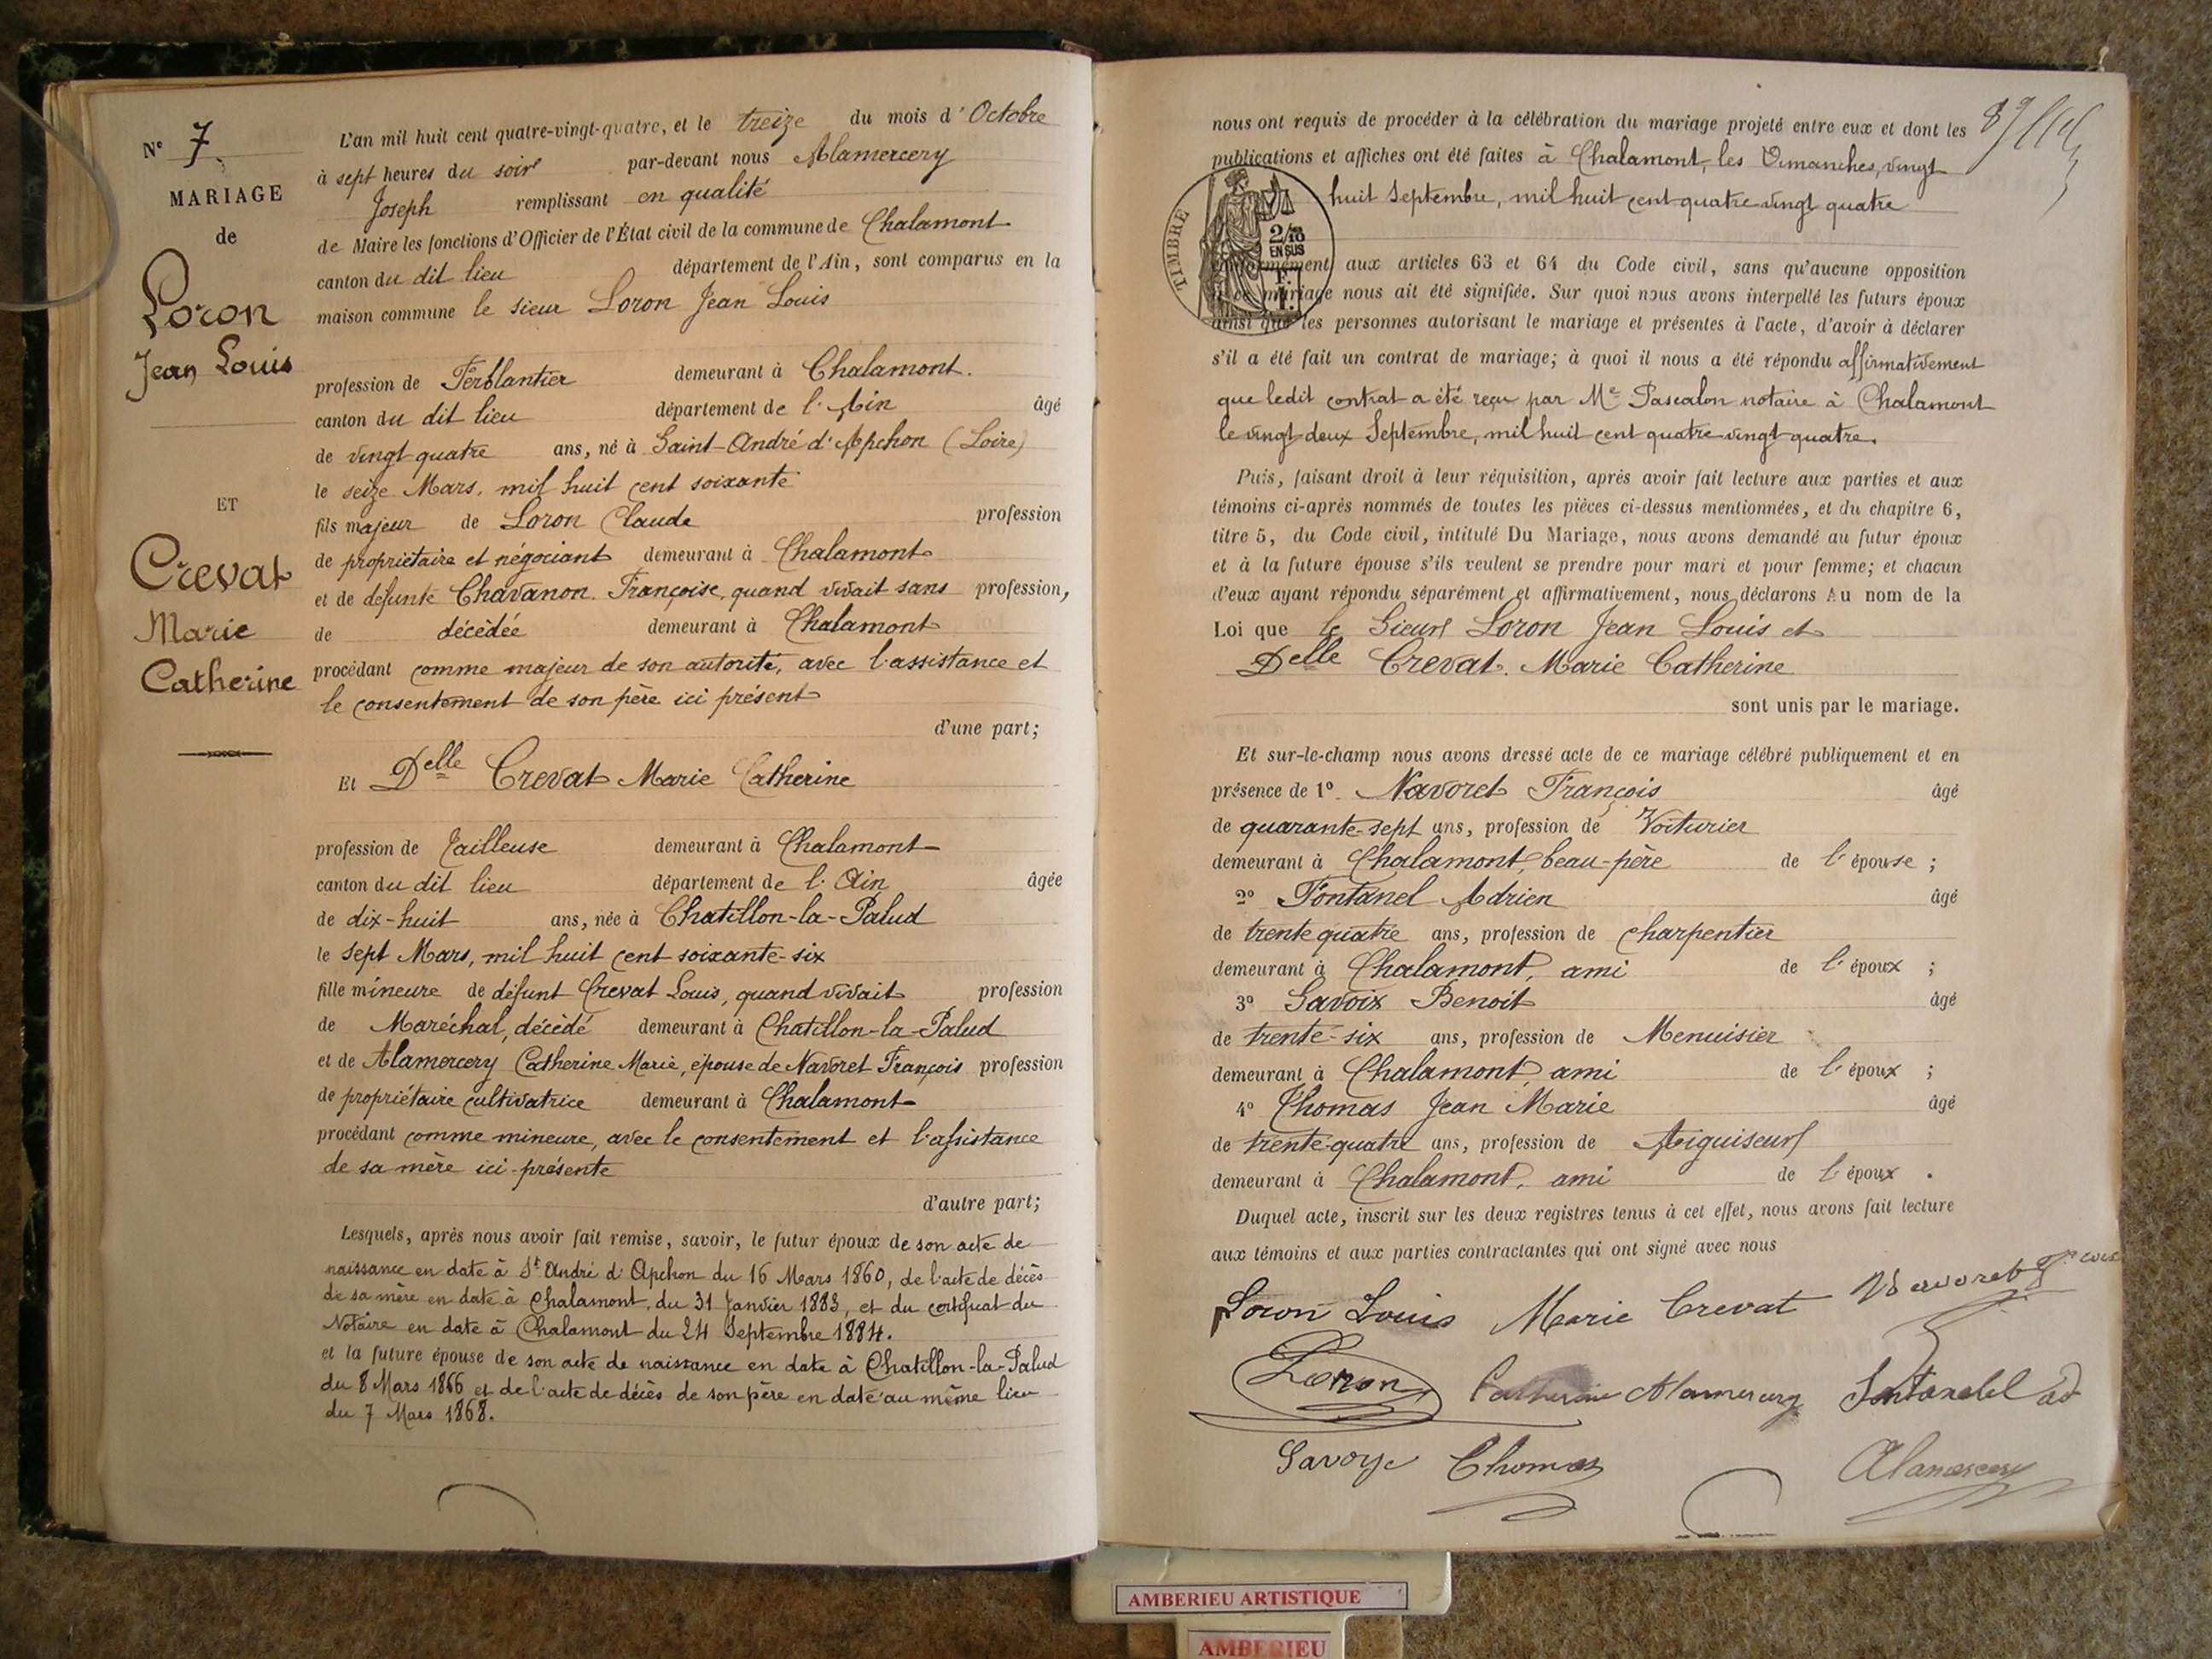 N° 7.
MARIAGE
de
Loron
Jean Louis
ET
Crevat
Marie
Catherine
L'an mil huit cent quatre-vingt-quatre, et le treize du mois d'Octobre
à sept heures du soir par-devant nous Alamercery
Joseph remplissant en qualité
de Maire les fonctions d'Officier de l'État civil de la commune de Chalamont
canton du dit lieu département de l'Ain, sont comparus en la
maison commune le sieur Loron Jean Louis
profession de Ferblantier demeurant à Chalamont.
canton du dit lieu département de l'Ain âgé
de vingt quatre ans, né à Saint-André d'Apchon (Loire)
le seize Mars, mil huit cent soixante
fils majeur de Loron Claude profession
de propriétaire et négociant demeurant à Chalamont
et de défunte Chavanon Françoise, quand vivait sans profession,
de décédée demeurant à Chalamont
procédant comme majeur de son autorité, avec l'assistance et
le consentement de son père ici présent
d'une part;
Et Delle Crevat Marie Catherine
profession de Tailleuse demeurant à Chalamont
canton du dit lieu département de l'Ain âgée
de dix-huit ans, née à Chatillon-la-Palud
le sept Mars, mil huit cent soixante-six
fille mineure de défunt Crevat Louis, quand vivait profession
de Maréchal, décédé demeurant à Chatillon-la-Palud
et de Alamercery Catherine Marie, épouse de Navoret François profession
de propriétaire cultivatrice demeurant à Chalamont
procédant comme mineure, avec le consentement et l'assistance
de sa mère ici-présente
d'autre part;
Lesquels, après nous avoir fait remise, savoir, le futur époux de son acte de
naissance en date à St André d'Apchon du 16 Mars 1860, de l'acte de décès
de sa mère en date à Chalamont, du 31 Janvier 1883, et du certificat du
Notaire en date à Chalamont du 24 Septembre 1884.
et la future épouse de son acte de naissance en date à Chatillon-la-Palud
du 8 Mars 1866 et de l'acte de décès de son père en date au même lieu
du 7 Mars 1868.
nous ont requis de procéder à la célébration du mariage projeté entre eux et dont les
publications et affiches ont été faites à Chalamont, les Dimanches, vingt
huit Septembre, mil huit cent quatre vingt quatre
TIMBRE
2/10
EN SUS
aux articles 63 et 64 du Code civil, sans qu'aucune opposition
mariage nous ait été signifiée. Sur quoi nous avons interpellé les futurs époux
ainsi que les personnes autorisant le mariage et présentes à l'acte, d'avoir à déclarer
s'il a été fait un contrat de mariage; à quoi il nous a été répondu affirmativement
que ledit contrat a été reçu par Me Pascalon notaire à Chalamont
le vingt deux Septembre, mil huit cent quatre vingt quatre.
Puis, faisant droit à leur réquisition, après avoir fait lecture aux parties et aux
témoins ci-après nommés de toutes les pièces ci-dessus mentionnées, et du chapitre 6,
titre 5, du Code civil, intitulé Du Mariage, nous avons demandé au futur époux
et à la future épouse s'ils veulent se prendre pour mari et pour femme; et chacun
d'eux ayant répondu séparément et affirmativement, nous déclarons Au nom de la
Loi que le Sieur Loron Jean Louis et
Delle Crevat. Marie Catherine
sont unis par le mariage.
Et sur-le-champ nous avons dressé acte de ce mariage célébré publiquement et en
présence de 1° Navoret François âgé
de quarante-sept ans, profession de Voiturier
demeurant à Chalamont, beau-père de l'épouse;
2° Fontanel Adrien âgé
de trente quatre ans, profession de charpentier
demeurant à Chalamont, ami de l'époux;
3° Savoix Benoit âgé
de trente-six ans, profession de Menuisier
demeurant à Chalamont, ami de l'époux;
4° Thomas Jean Marie âgé
de trente-quatre ans, profession de Aiguiseur
demeurant à Chalamont, ami de l'époux.
Duquel acte, inscrit sur les deux registres tenus à cet effet, nous avons fait lecture
aux témoins et aux parties contractantes qui ont signé avec nous
Loron Louis Marie Crevat Navoret
Loron Catherine Alamercery Fontanel ad
Savoye Thomas Alamercery
AMBERIEU ARTISTIQUE
AMBERIEU